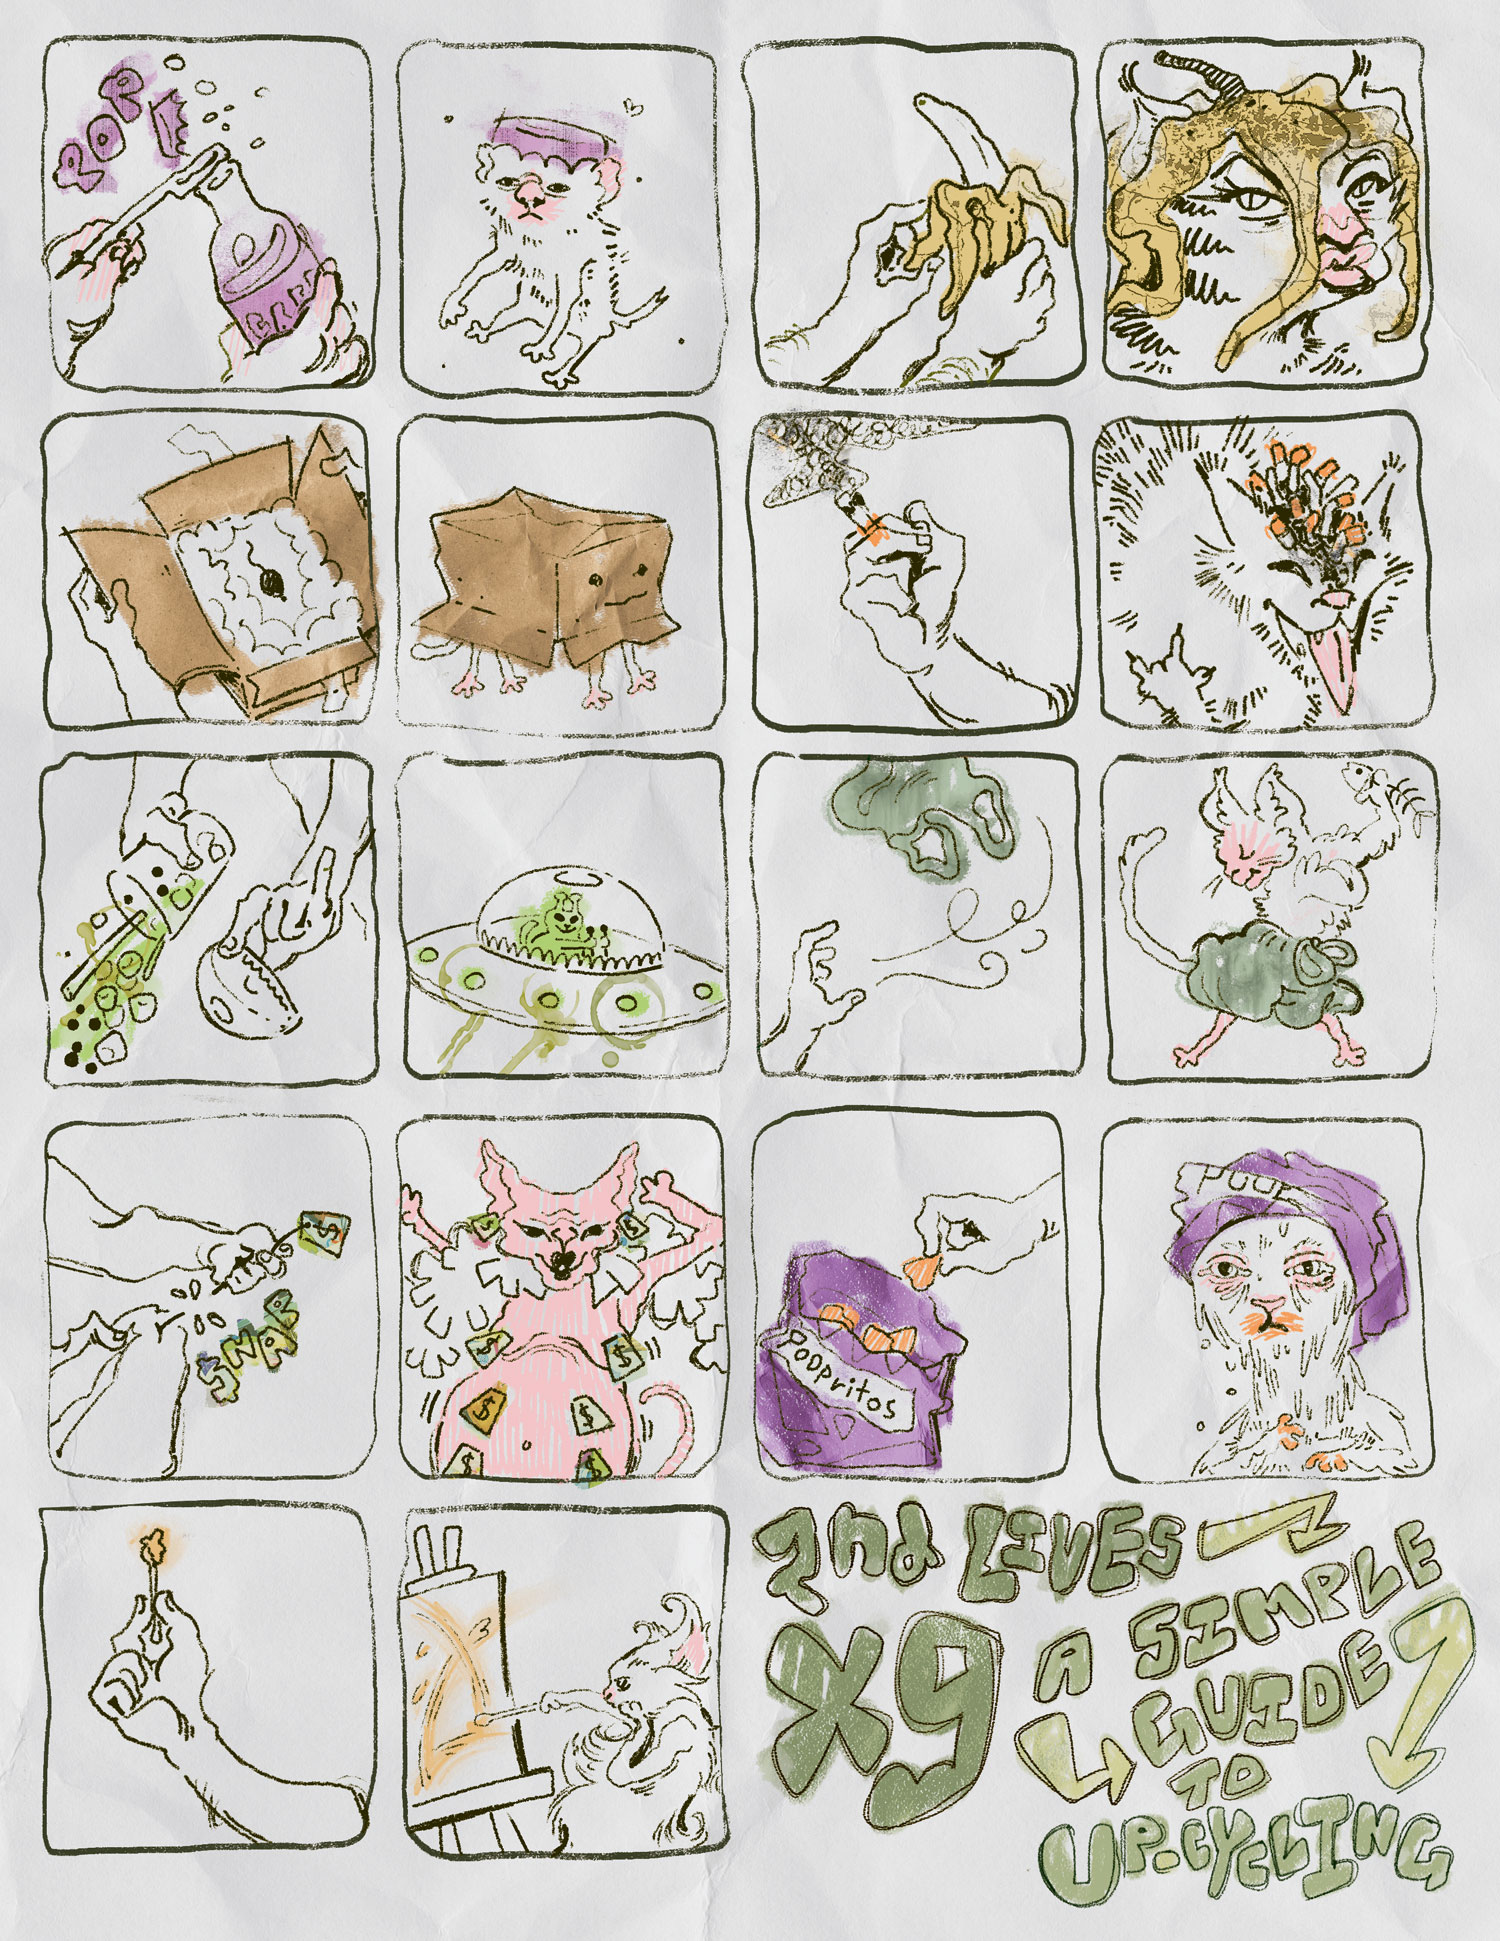 POP
POOP
SNAP
$
$
$
$
$
$
$
$
$
POOPritos
2nd LIVES
x9
A SIMPLE
GUIDE
TO
UP-CYCLING